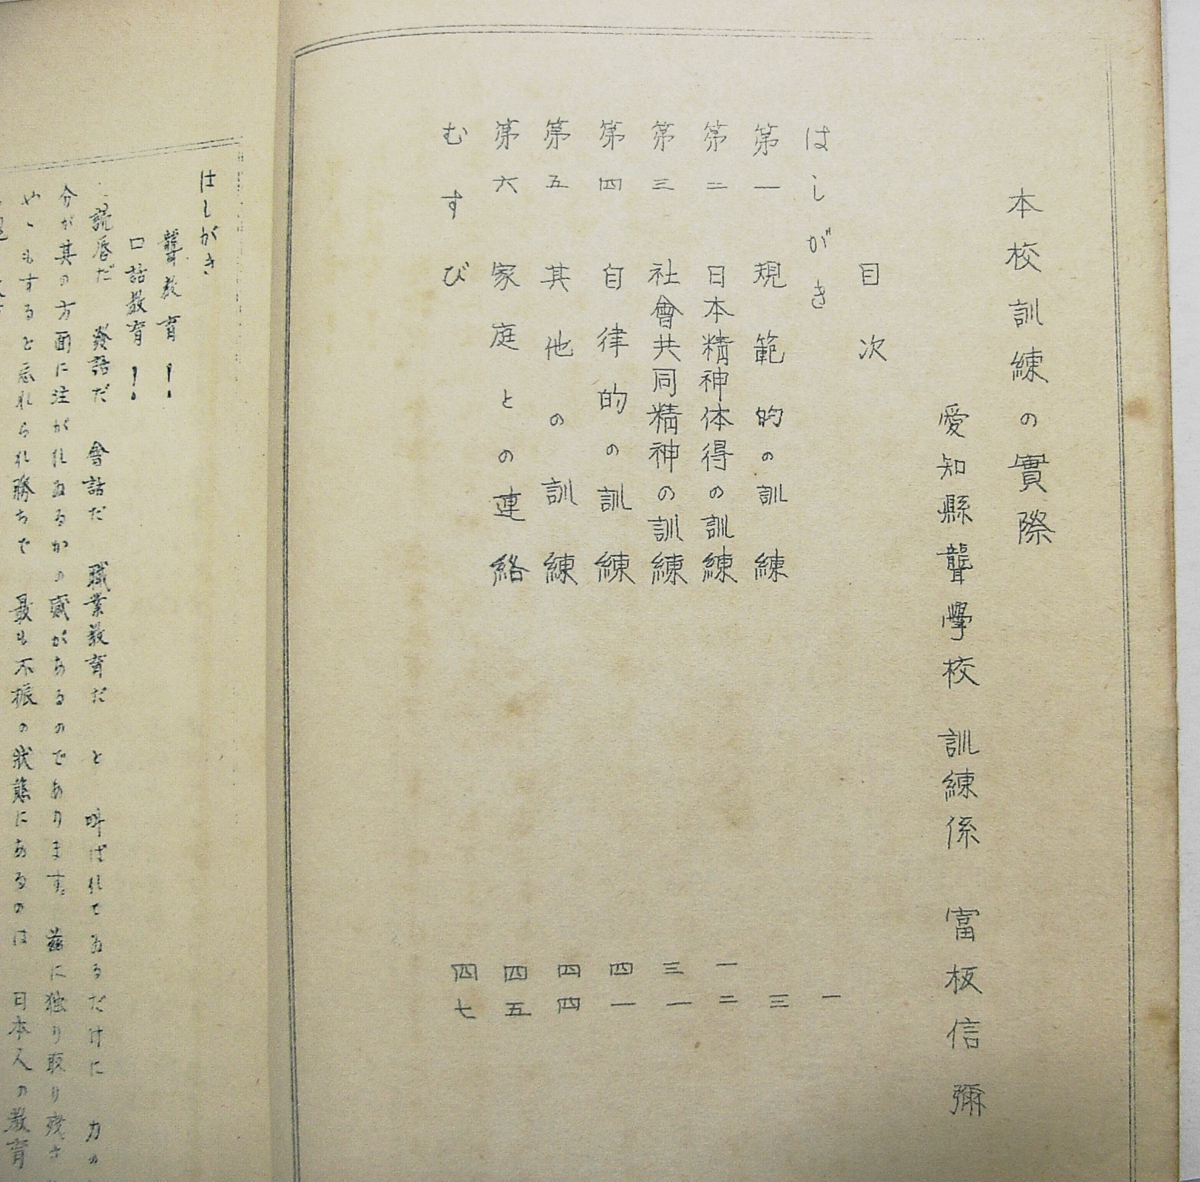 本校訓練の實際
愛知縣聾學校 訓練係 富板信彌
目次
はしがき 一
第一 規範的の訓練 三
第二 日本精神体得の訓練 一二
第三 社會共同精神の訓練 三一
第四 自律的の訓練 四一
第五 其他の訓練 四四
第六 家庭との連絡 四五
むすび 四七
はしがき
聾教育!
口話教育!
読唇だ 發語だ 會話だ 職業教育だ と 叫ばれてゐるだけに 力の
分が其の方面に注がれゐるかの感があるのであります。茲に独り取り残さ
やゝもすると忘れられ勝ちで 最も不振の状態にあるのは 日本人の教育